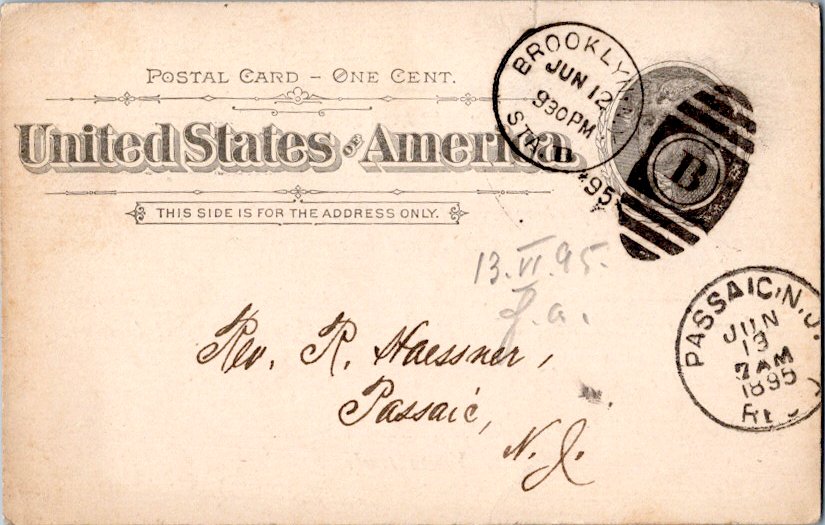 POSTAL CARD – ONE CENT.
United States of America.
THIS SIDE IS FOR THE ADDRESS ONLY.
BROOKLYN
JUN 12
930 PM
95
STA. B
B
13.VI.95.
PASSAIC, N.J.
JUN
13
7 AM
1895
Rev. R. Haessner,
Passaic,
N. J.